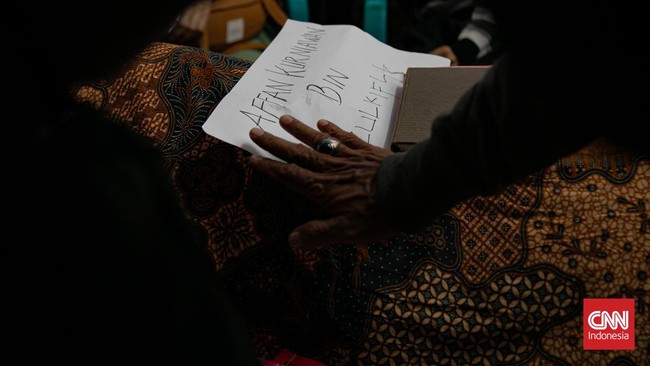 AFFAN KURNIAWAN
BIN
CNN
Indonesia